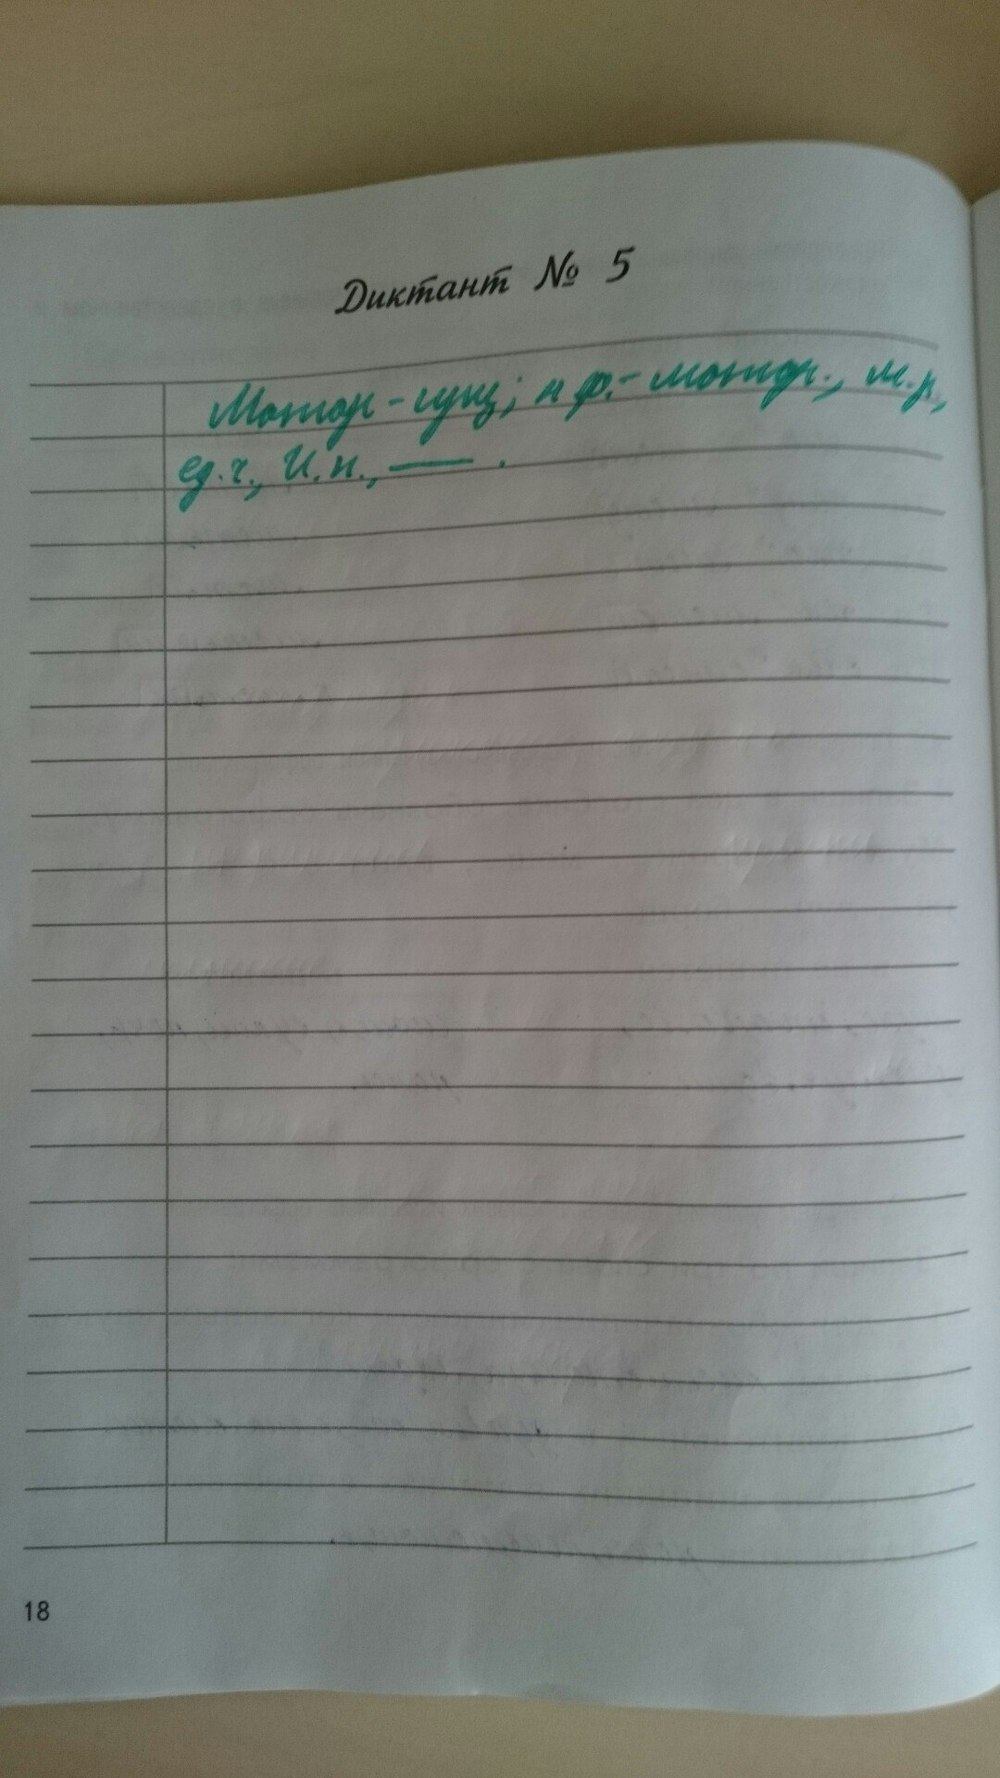 Диктант № 5
Мотор - сущ; н ф.- мотор., м.р,
ед.ч., И.п., — .
18